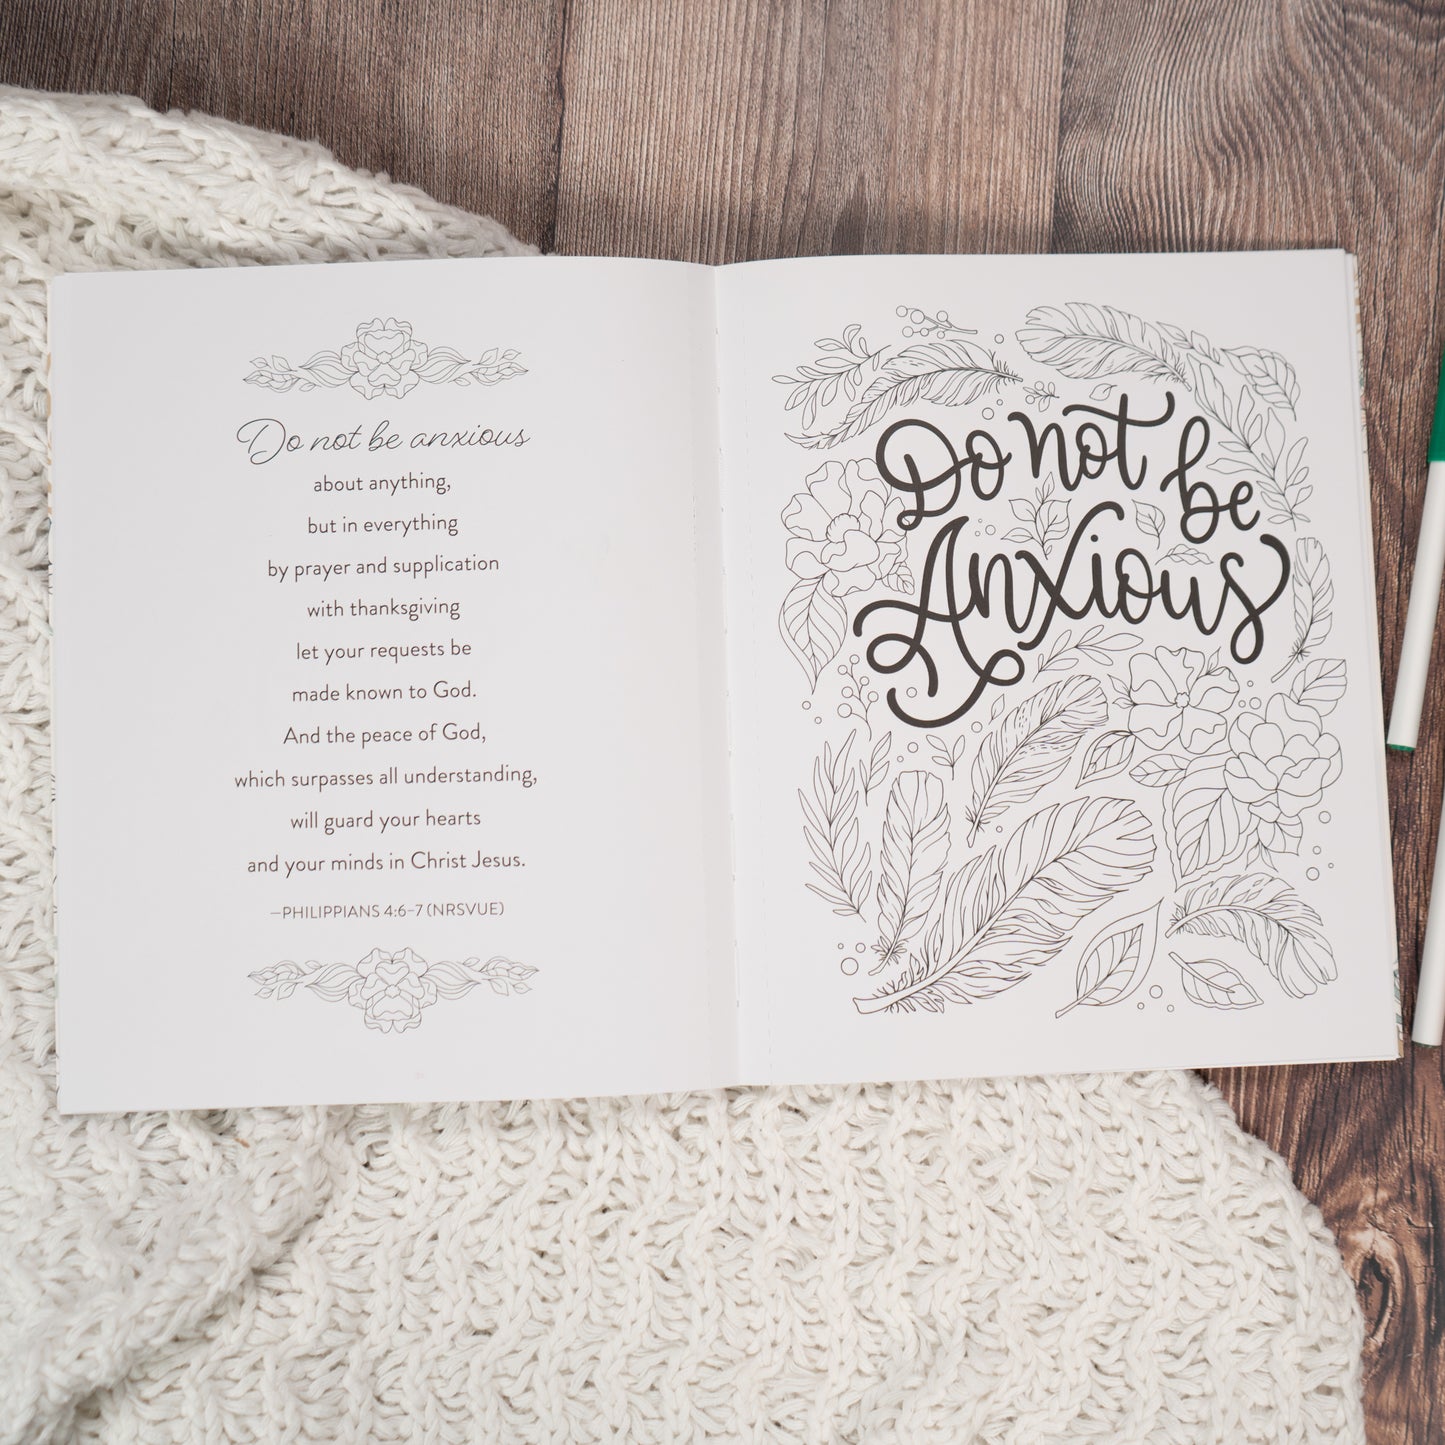 Do not be anxious
about anything,
but in everything
by prayer and supplication
with thanksgiving
let your requests be
made known to God.
And the peace of God,
which surpasses all understanding,
will guard your hearts
and your minds in Christ Jesus.
—PHILIPPIANS 4:6–7 (NRSVUE)
Do not be
Anxious